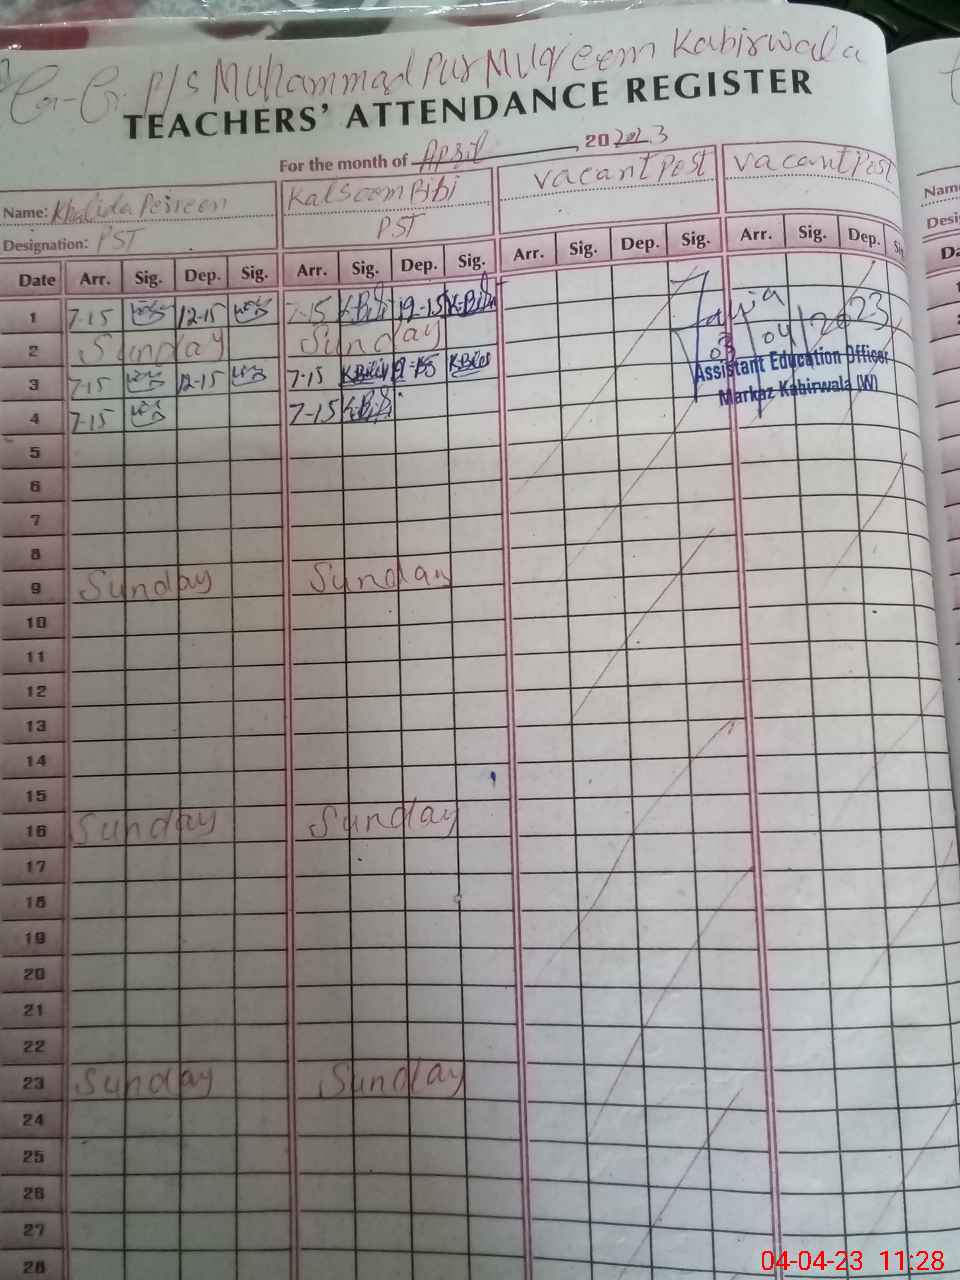 G-G. P/S Muhammad Pur Muqeem Kabirwala
TEACHERS' ATTENDANCE REGISTER
For the month of April, 20 2023
Name: Khalida Perveen Kalsoom Bibi vacant Post vacant Post
Designation: PST PST
Date Arr. Sig. Dep. Sig. Arr. Sig. Dep. Sig. Arr. Sig. Dep. Sig. Arr. Sig. Dep. Si
1 7-15 12-15 7-15 K.Bibi 12-15 K.Bibi
2 Sunday Sunday
3 7-15 12-15 7-15 K.Bibi 12-15 K.Bibi
4 7-15 7-15 K.Bibi
03/04/2023
Assistant Education Officer
Markaz Kabirwala (W)
5
6
7
8
9 Sunday Sunday
10
11
12
13
14
15
16 Sunday Sunday
17
18
19
20
21
22
23 Sunday Sunday
24
25
26
27
28
Name
Desi
Da
04-04-23 11:28